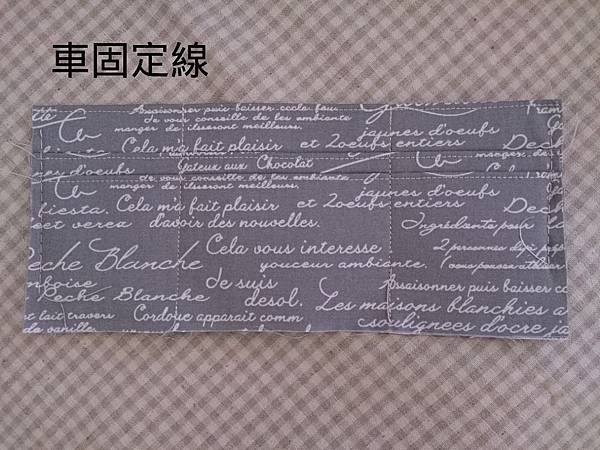 車固定線
Assaisonner puis baisser
de vous conseille de les ambiante
manger de ilsseront meilleurs.
jaunes d'oeufs
Cela m'a fait plaisir et 2oeufs entiers Dec
d'oeufs Gateux aux Chocolat
de vous conseille de les ambiante
manger de ilsseront meilleurs.
jaunes d'oeufs
fiesta. Cela m'a fait plaisir et 2oeufs entiers Dec
et verea d'avoir des nouvelles. Ingrédients pour
Cela vous interesse 2 personnes
Peche Blanche youceur ambiante.
de suis Assaisonner puis baisser co
Peche Blanche desol. Les maisons blanchies a
t lait travers Cordoue apparait comm soulignees d'ocre ja
de vanille